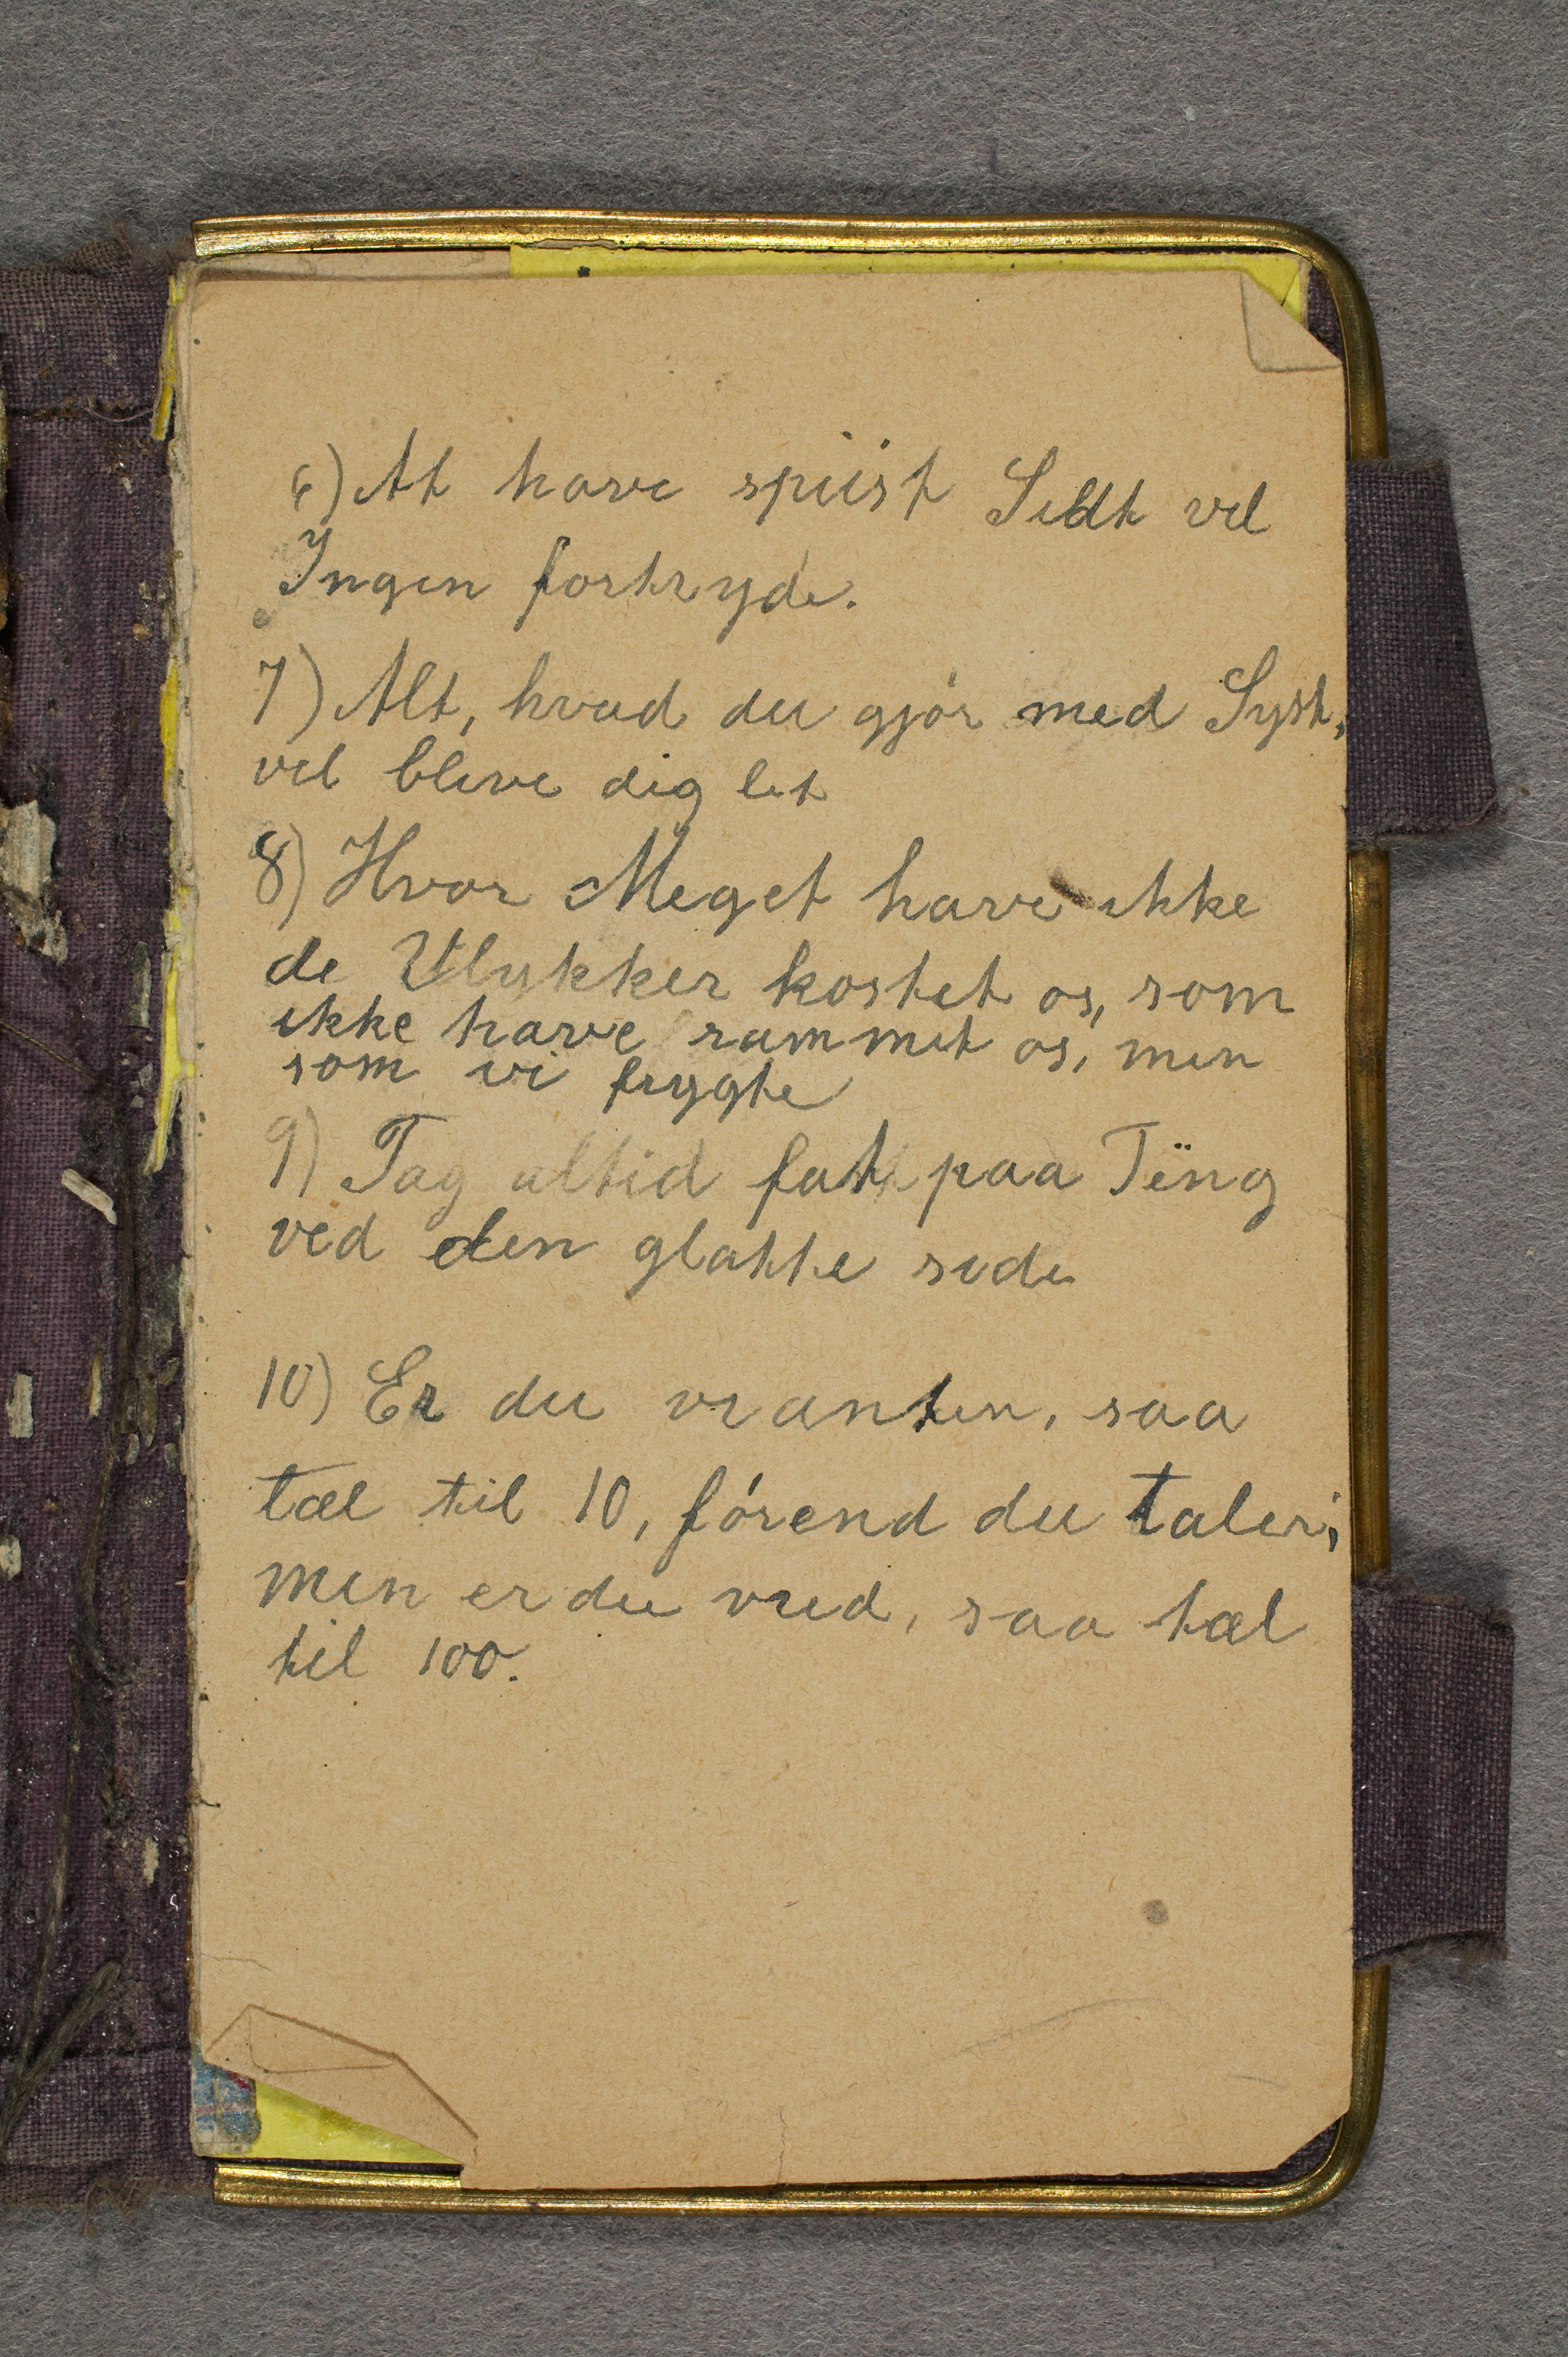 6) At have spiist Lidt vil
Ingen fortryde.
7) Alt, hvad du gjør med Lyst,
vil blive dig let
8) Hvor Meget have ikke
de Ulykker kostet os, som
ikke have rammet os, men
som vi frygte
9) Tag altid fat paa Ting
ved den glatte side
10) Er du vranten, saa
tæl til 10, førend du taler;
men er du vred, saa tæl
til 100.